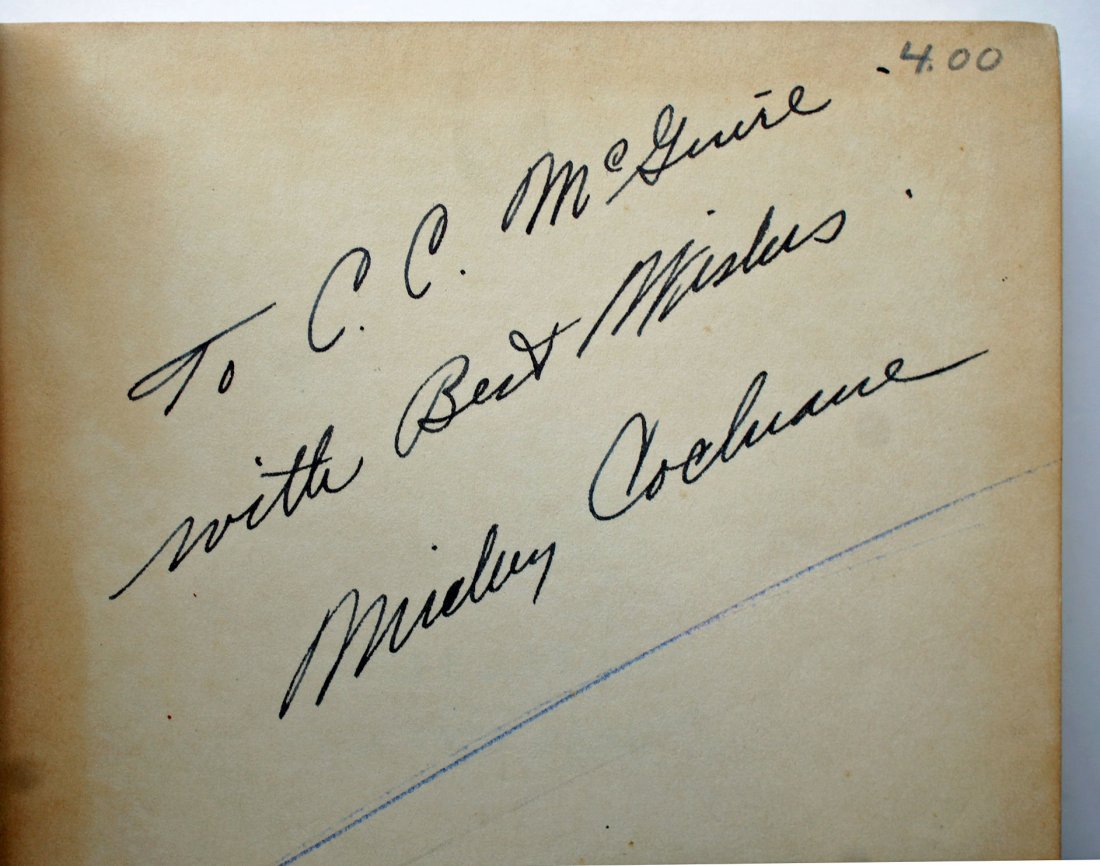 4.00
To C. C. McGuire
with Best Wishes
Mickey Cochrane